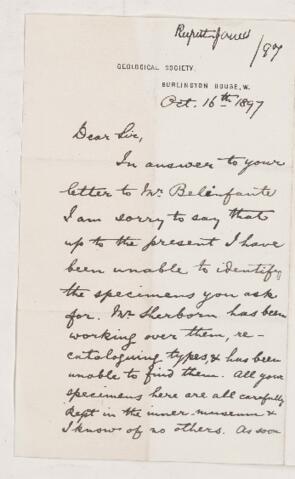 Rupert Jones
/97
GEOLOGICAL SOCIETY.
BURLINGTON HOUSE, W.
Oct. 16th 1897
Dear Sir,
In answer to your
letter to Mr. Belinfante
I am sorry to say that
up to the present I have
been unable to identify
the specimens you ask
for. Mr Sherborn has been
working over them, re-
cataloguing types, & has been
unable to find them. All your
specimens here are all carefully
kept in the inner-museum &
I know of no others. As soon